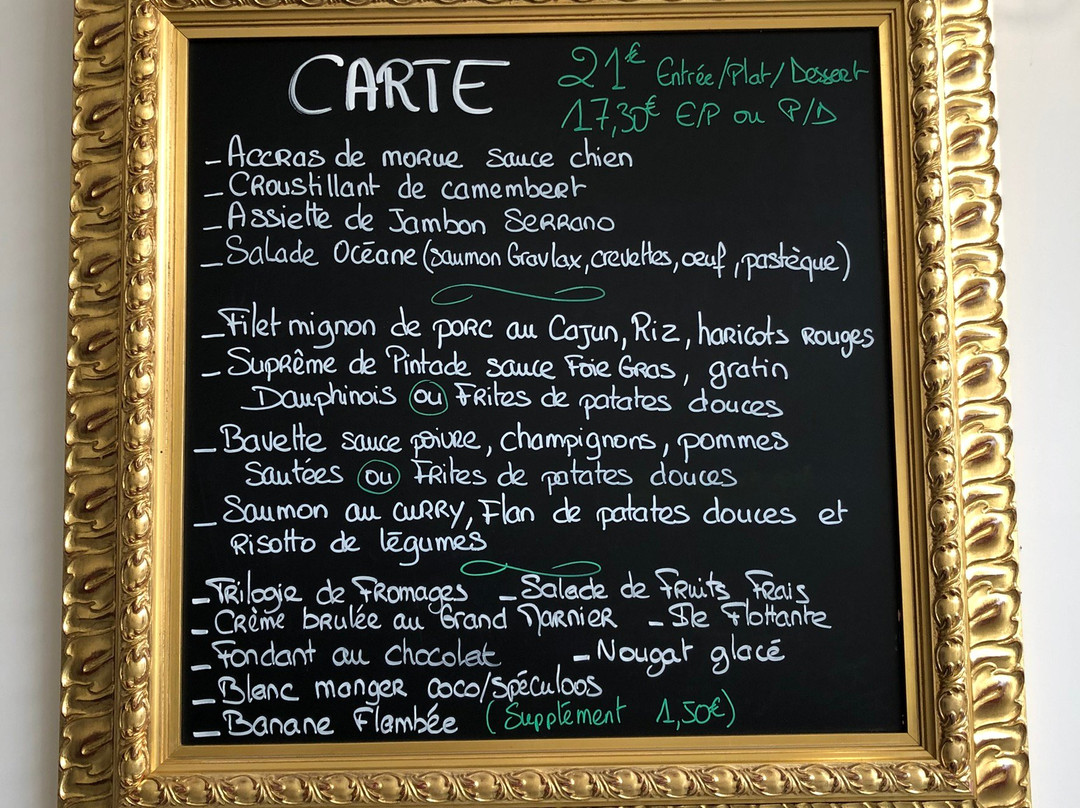 CARTE
21€ Entrée/Plat/Dessert
17,30€ E/P ou P/D
- Accras de morue sauce chien
- Croustillant de camembert
- Assiette de Jambon Serrano
- Salade Océane (saumon Gravlax, crevettes, oeuf, pastèque)
- Filet mignon de porc au Cajun, Riz, haricots rouges
- Suprême de Pintade sauce Foie Gras, gratin
Dauphinois ou Frites de patates douces
- Bavette sauce poivre, champignons, pommes
Sautées ou Frites de patates douces
- Saumon au curry, Flan de patates douces et
Risotto de légumes
- Trilogie de Fromages - Salade de Fruits Frais
- Crème brulée au Grand Marnier - Ile Flottante
- Fondant au chocolat - Nougat glacé
- Blanc manger coco/Spéculoos
- Banane Flambée (Supplément 1,50€)